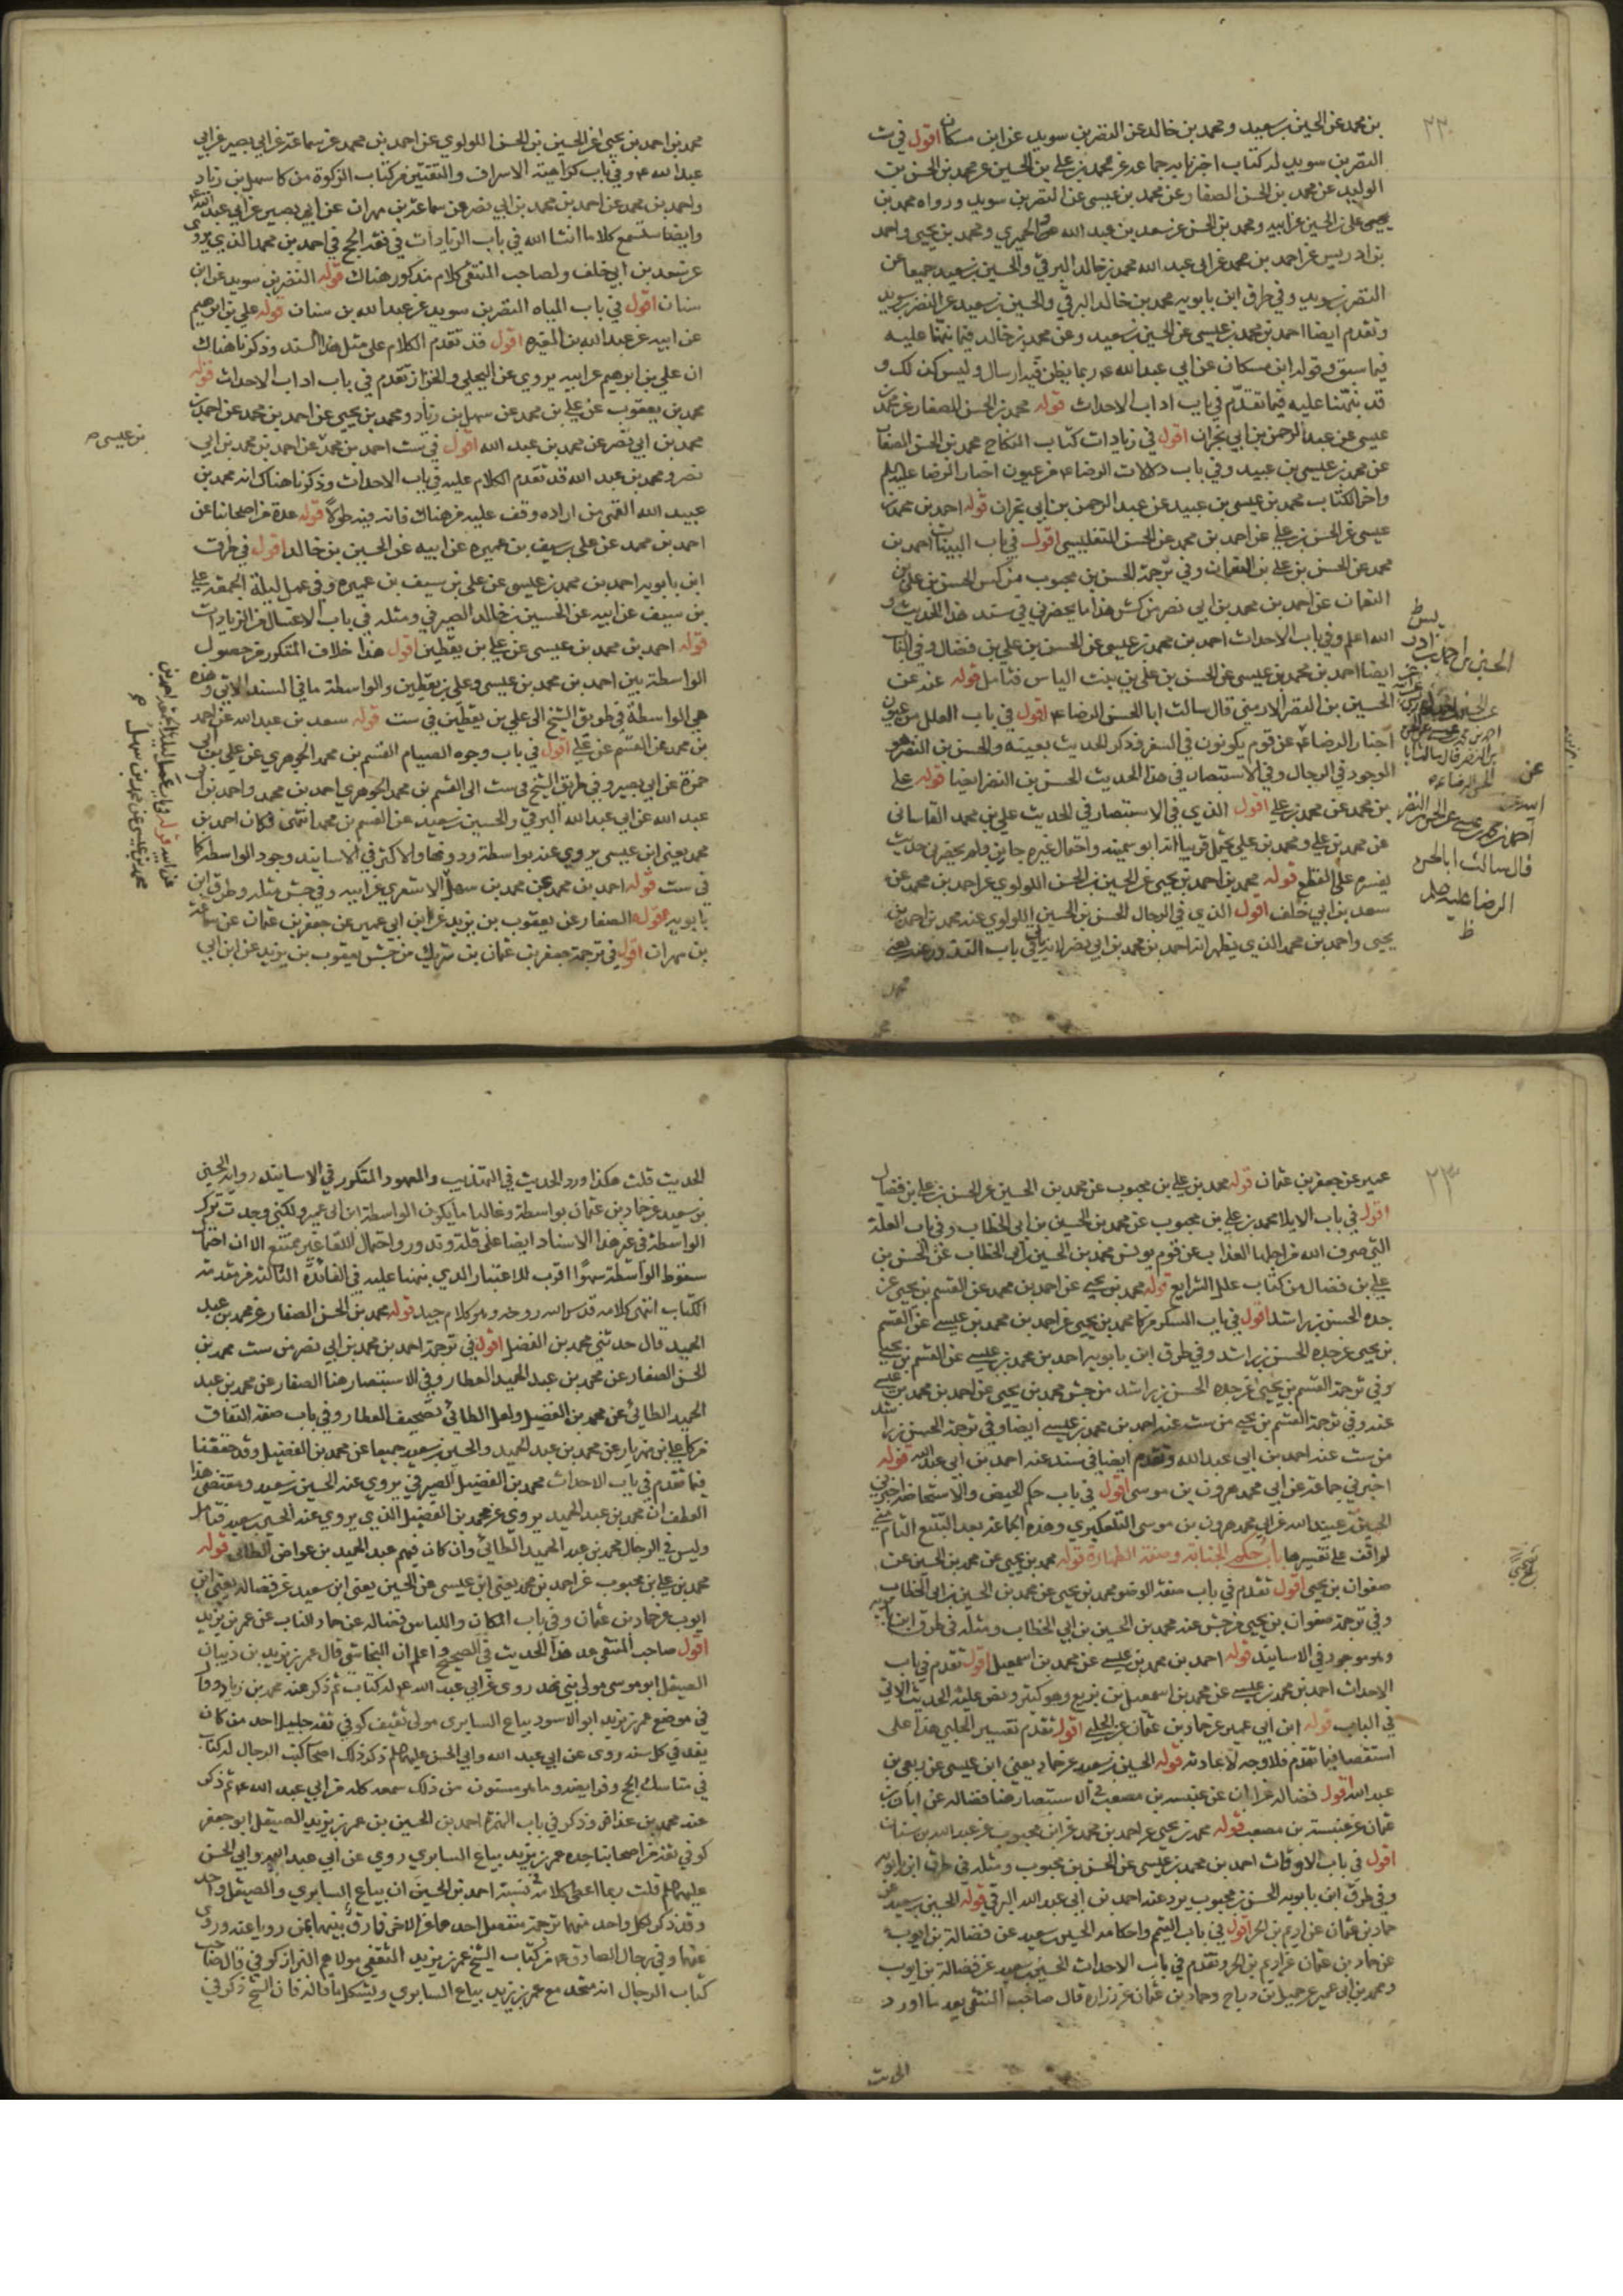 بن محمد عن الحسين بن سعيد ومحمد بن خالد عن النضر بن سويد عن ابن مسكان اقول في ست
النضر بن سويد له كتاب اخبرنا به جماعة عن محمد بن علي بن الحسين عن محمد بن الحسن بن
الوليد عن محمد بن الحسن الصفار عن محمد بن عيسى عن النضر بن سويد ورواه محمد بن
علي بن الحسين عن ابيه ومحمد بن الحسن عن سعد بن عبد الله والحميري ومحمد بن يحيى واحمد
بن ادريس عن احمد بن محمد عن ابي عبد الله محمد بن خالد البرقي والحسين بن سعيد جميعا عن
النضر بن سويد وفي طرق ابن بابويه محمد بن خالد البرقي والحسين بن سعيد عن النضر بن سويد
وتقدم ايضا احمد بن محمد بن عيسى عن الحسين بن سعيد وعن محمد بن خالد فيما نبهنا عليه
فيما سبق وقوله ابن مسكان عن ابي عبد الله ع ربما يظن فيه ارسال وليس كذلك و
قد نبهنا عليه فيما تقدم في باب اداب الاحداث قوله محمد بن الحسن الصفار عن محمد بن
عيسى عن عبد الرحمن بن ابي نجران اقول في زيادات كتاب النكاح محمد بن الحسن الصفار
عن محمد بن عيسى بن عبيد وفي باب دلالات الرضا ع من عيون اخبار الرضا عليه السلم
واخر الكتاب محمد بن عيسى بن عبيد عن عبد الرحمن بن ابي نجران قوله احمد بن محمد بن
عيسى عن الحسن بن علي عن احمد بن محمد عن الحسن التفليسي اقول في باب البينات احمد بن
محمد عن الحسن بن علي بن النعمان وفي ترجمة الحسن بن محبوب من كش الحسن بن علي بن
النعمان عن احمد بن محمد بن ابي نصر من كش هذا ما يحضرني في سند هذا الحديث و
الله اعلم وفي باب الاحداث احمد بن محمد بن عيسى عن الحسن بن علي بن فضال وفي الباب
ايضا احمد بن محمد بن عيسى عن الحسن بن علي بن بنت الياس فتامل قوله عنه عن
الحسين بن النضر الارمني قال سالت ابا الحسن الرضا ع اقول في باب العلل من عيون
اخبار الرضا ع عن قوم يكونون في السفر فذكر الحديث بعينه والحسن بن النضر هو
الموجود في الرجال وفي الاستبصار في هذا الحديث الحسن بن النضر ايضا قوله علي
بن محمد عن محمد بن علي اقول الذي في الاستبصار في الحديث علي بن محمد القاساني
عن محمد بن علي ومحمد بن علي يحتمل قريبا انه ابو سمينه واحتمال غيره جايز ولم يحضرني حديث
يفسره على القطع قوله محمد بن احمد بن يحيى عن الحسين بن الحسن اللولوي عن احمد بن محمد عن
سعد بن ابي خلف اقول الذي في الرجال الحسن بن الحسين اللولوي عنه محمد بن احمد بن
يحيى واحمد بن محمد الذي يظهر انه احمد بن محمد بن ابي نصر
محمد بن احمد بن يحيى عن الحسين بن الحسن اللولوي عن احمد بن محمد عن سماعة عن ابي بصير عن ابي
عبد الله ع وفي باب كراهية الاسراف والتقتير من كتاب الزكوة من كا سهل بن زياد
واحمد بن محمد عن احمد بن محمد بن ابي نصر عن سماعة بن مهران عن ابي بصير عن ابي عبد الله ع
وايضا ستسمع كلاما انشا الله في باب الزيادات في فقه الحج في احمد بن محمد الذي يروي
عن سعد بن ابي خلف ولصاحب المنتقى كلام مذكور هناك قوله النضر بن سويد عن ابن
سنان اقول في باب المياه النضر بن سويد عن عبد الله بن سنان قوله علي بن ابرهيم
عن ابيه عن عبد الله بن المغيره اقول قد تقدم الكلام على مثل هذا السند وذكرنا هناك
ان علي بن ابرهيم عن ابيه يروي عن البجلي والخزاز تقدم في باب اداب الاحداث قوله
محمد بن يعقوب عن علي بن محمد عن سهل بن زياد ومحمد بن يحيى عن احمد بن محمد عن احمد بن
محمد بن ابي نصر عن محمد بن عبد الله اقول في ست احمد بن محمد عن احمد بن محمد بن ابي
بن عيسى
نصر ومحمد بن عبد الله قد تقدم الكلام عليه في باب الاحداث وذكرنا هناك انه محمد بن
عبيد الله القمي من اراده وقف عليه من هناك فان فيه طولا قوله عدة من اصحابنا عن
احمد بن محمد عن علي بن سيف بن عميره عن ابيه عن الحسين بن خالد اقول في طرق
ابن بابويه احمد بن محمد بن عيسى عن علي بن سيف بن عميره وفي عمل ليلة الجمعة علي
بن سيف عن ابيه عن الحسين بن خالد الصيرفي ومثله في باب الاغتسال من الزيادات
قوله احمد بن محمد بن عيسى عن علي بن يقطين اقول هذا خلاف المتكرر من حصول
الواسطة بين احمد بن محمد بن عيسى وعلي بن يقطين والواسطة ما في السند الاتي وهذه
هي الواسطة في طريق الشيخ الى علي بن يقطين في ست قوله سعد بن عبد الله عن احمد
بن محمد عن القسم عن علي اقول في باب وجوه الصيام القسم بن محمد الجوهري عن علي بن ابي
حمزة عن ابي بصير وفي طريق الشيخ في ست الى القسم بن محمد الجوهري احمد بن محمد واحمد بن ابي
عبد الله عن ابي عبد الله البرقي والحسين بن سعيد عن القسم بن محمد انتهى فكان احمد بن
محمد يعني ابن عيسى يروي عنه بواسطة ودونها والاكثر في الاسانيد وجود الواسطة كما
في ست قوله احمد بن محمد عن محمد بن سهل الاشعري عن ابيه وفي جش مثله وطرق ابن
بابويه قوله الصفار عن يعقوب بن يزيد عن ابن ابي عمير عن جعفر بن عثمان عن سماعة
بن مهران اقول في ترجمة جعفر بن عثمان بن شريك من جش يعقوب بن يزيد عن ابن ابي
عمير عن جعفر بن عثمان قوله محمد بن علي بن محبوب عن محمد بن الحسين عن الحسن بن علي بن فضال
اقول في باب الايلا محمد بن علي بن محبوب عن محمد بن الحسين بن ابي الخطاب وفي باب العلة
التي صرف الله من اجلها العذاب عن قوم يونس محمد بن الحسين بن ابي الخطاب عن الحسن بن
علي بن فضال من كتاب علل الشرايع قوله محمد بن يحيى عن احمد بن محمد عن القسم بن يحيى عن
جده الحسن بن راشد اقول في باب السكر من كا محمد بن يحيى عن احمد بن محمد بن عيسى عن القسم
بن يحيى عن جده الحسن بن راشد وفي طرق ابن بابويه احمد بن محمد بن عيسى عن القسم بن يحيى
وفي ترجمة القسم بن يحيى عن جده الحسن بن راشد من جش محمد بن يحيى عن احمد بن محمد بن عيسى
عنه وفي ترجمة القسم بن يحيى من ست عنه احمد بن محمد بن عيسى ايضا وفي ترجمة الحسن بن راشد
من ست عنه احمد بن ابي عبد الله وتقدم ايضا في سند عنه احمد بن ابي عبد الله قوله
اخبرني جماعة عن ابي محمد هرون بن موسى اقول في باب حكم الحيض والاستحاضة اخبرني
الحسين بن عبيد الله عن ابي محمد هرون بن موسى التلعكبري وهذه الجماعة بعد التتبع التام مني
لم اقف على تفسيرها باب حكم الجنابة وصفة الطهارة قوله محمد بن يحيى عن محمد بن الحسين عن
صفوان بن يحيى اقول تقدم في باب صفة الوضو محمد بن يحيى عن محمد بن الحسين بن ابي الخطاب
وفي ترجمة صفوان بن يحيى من جش عنه محمد بن الحسين بن ابي الخطاب ومثله في طرق ابن بابويه
وهو موجود في الاسانيد قوله احمد بن محمد بن عيسى عن محمد بن اسمعيل اقول تقدم في باب
الاحداث احمد بن محمد بن عيسى عن محمد بن اسمعيل بن بزيع وهو كثير ونص عليه الحديث الاتي
في الباب قوله ابن ابي عمير عن حماد بن عثمان عن الحلبي اقول تقدم تفسير الحلبي هذا على
استقصا فيما تقدم فلا وجه لاعادته قوله الحسين بن سعيد عن حماد يعني ابن عيسى عن ربعي بن
عبد الله اقول فضاله عن ابان عن عنبسه بن مصعب في الاستبصار هنا فضاله عن ابان بن
عثمان عن عنبسة بن مصعب قوله محمد بن يحيى عن احمد بن محمد عن ابن محبوب عن عبد الله بن سنان
اقول في باب الاوقات احمد بن محمد بن عيسى عن الحسن بن محبوب ومثله في طرق ابن بابويه
وفي طرق ابن بابويه الحسن بن محبوب يرد عنه احمد بن ابي عبد الله البرقي قوله الحسين بن سعيد عن
حماد بن عثمان عن اديم بن الحر اقول في باب التيمم واحكامه الحسين بن سعيد عن فضالة بن ايوب
عن حماد بن عثمان عن اديم بن الحر وتقدم في باب الاحداث الحسين بن سعيد عن فضاله بن ايوب
ومحمد بن ابي عمير عن جميل بن دراج وحماد بن عثمان عن زراره قال صاحب المنتقى بعد ما اورد
الحديث
الحديث قلت هكذا ورد الحديث في التهذيب والمعهود المتكرر في الاسانيد رواية الحسين
بن سعيد عن حماد بن عثمان بواسطة وغالبا ما يكون الواسطة ابن ابي عمير ولكني وجدت ترك
الواسطة في غير هذا الاسناد ايضا على قلة وندور واحتمال اللقا غير ممتنع الا ان احتمال
سقوط الواسطة سهوا اقرب للاعتبار الذي نبهنا عليه في الفائدة الثالثة من مقدمة
الكتاب انتهى كلامه قدس الله روحه وهو كلام جيد قوله محمد بن الحسن الصفار عن محمد بن عبد
الحميد قال حدثني محمد بن الفضل اقول في ترجمة احمد بن محمد بن ابي نصر من ست محمد بن
الحسن الصفار عن محمد بن عبد الحميد العطار وفي الاستبصار هنا الصفار عن محمد بن عبد
الحميد الطائي عن محمد بن الفضيل ولعل الطائي تصحيف العطار وفي باب صفة النفاق
من كا علي بن مهزيار عن محمد بن عبد الحميد والحسين بن سعيد جميعا عن محمد بن الفضيل وقد حققنا
فيما تقدم في باب الاحداث محمد بن الفضيل الصيرفي يروي عنه الحسين بن سعيد ومقتضى هذا
العطف ان محمد بن عبد الحميد يروي عن محمد بن الفضيل الذي يروي عنه الحسين بن سعيد فتامل
وليس في الرجال محمد بن عبد الحميد الطائي وان كان فيهم عبد الحميد بن عواض الطائي قوله
محمد بن علي بن محبوب عن احمد بن محمد يعني ابن عيسى عن الحسين يعني ابن سعيد عن فضاله يعني ابن
ايوب عن حماد بن عثمان وفي باب المكان واللباس فضاله عن حماد الناب عن عمر بن يزيد
اقول صاحب المنتقى عد هذا الحديث في الصحيح واعلم ان النجاشي قال عمر بن يزيد بن ذبيان
الصيقل ابو موسى مولى بني نهد روى عن ابي عبد الله ع له كتاب ثم ذكر عنه محمد بن زياد وقال
في موضع عمر بن يزيد ابو الاسود بياع السابري مولى ثقيف كوفي ثقة جليل احد من كان
يفد في كل سنة روى عن ابي عبد الله وابي الحسن عليهما السلم ذكر ذلك اصحاب كتب الرجال له كتاب
في مناسك الحج وفرايضه وما هو مسنون من ذلك سمعه كله من ابي عبد الله ع ثم ذكر
عنه محمد بن عذافر وذكر في باب الهمزة احمد بن الحسين بن عمر بن يزيد الصيقل ابو جعفر
كوفي ثقة من اصحابنا جده عمر بن يزيد بياع السابري روى عن ابي عبد الله وابي الحسن
عليهما السلم قلت ربما اعطى كلامه في نسبة احمد بن الحسين ان بياع السابري والصيقل واحد
وقد ذكر لكل واحد منهما ترجمة
عنهما وفي رجال الصادق ع من كتاب الشيخ عمر بن يزيد الثقفي مولاهم البزاز كوفي قال صاحب
كتاب الرجال انه متحد مع عمر بن يزيد بياع السابري ويشكل بما قاله فان الشيخ ذكر في